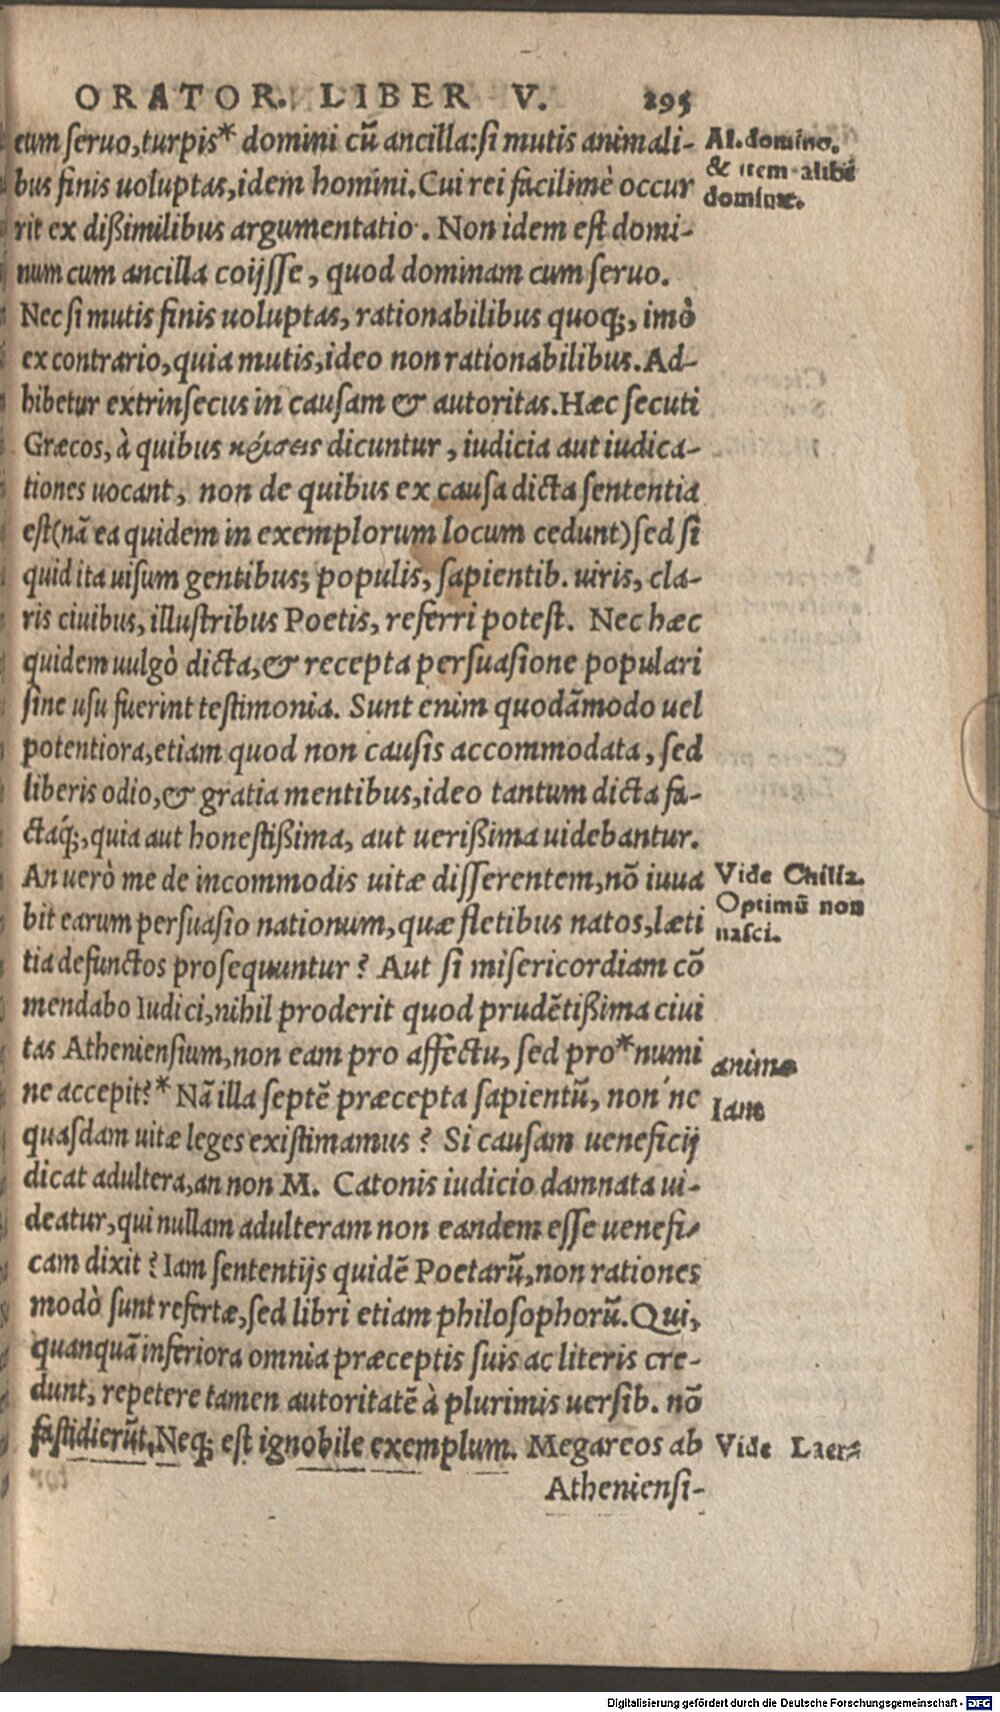 ORATOR. LIBER V. 295
cum ſeruo, turpis* domini cū ancilla: ſi mutis animali-
Al. domino.
bus finis uoluptas, idem homini. Cui rei facilimè occur
& item alibi
dominæ.
rit ex dißimilibus argumentatio. Non idem eſt domi-
num cum ancilla coijſſe, quod dominam cum ſeruo.
Nec ſi mutis finis uoluptas, rationabilibus quoq;, imò
ex contrario, quia mutis, ideo non rationabilibus. Ad-
hibetur extrinſecus in cauſam & autoritas. Hæc ſecuti
Græcos, à quibus κρίσεις dicuntur, iudicia aut iudica-
tiones uocant, non de quibus ex cauſa dicta ſententia
eſt (nā ea quidem in exemplorum locum cedunt) ſed ſi
quid ita uiſum gentibus, populis, ſapientib. uiris, cla-
ris ciuibus, illuſtribus Poetis, referri poteſt. Nec hæc
quidem uulgò dicta, & recepta perſuaſione populari
ſine uſu fuerint teſtimonia. Sunt enim quodāmodo uel
potentiora, etiam quod non cauſis accommodata, ſed
liberis odio, & gratia mentibus, ideo tantum dicta fa-
ctaq́;, quia aut honeſtißima, aut uerißima uidebantur.
An uerò me de incommodis uitæ diſſerentem, nō iuua
Vide Chilia.
bit earum perſuaſio nationum, quæ fletibus natos, læti
Optimū non
naſci.
tia defunctos proſequuntur? Aut ſi miſericordiam cō
mendabo Iudici, nihil proderit quod prudētißima ciui
tas Athenienſium, non eam pro affectu, ſed pro* numi
animo
ne accepit?* Nā illa ſeptē præcepta ſapientū, non'ne
Iam
quaſdam uitæ leges exiſtimamus? Si cauſam ueneficij
dicat adultera, an non M. Catonis iudicio damnata ui-
deatur, qui nullam adulteram non eandem eſſe uenefi-
cam dixit? Iam ſententijs quidē Poetarū, non rationes
modò ſunt refertæ, ſed libri etiam philoſophorū. Qui,
quanquā inferiora omnia præceptis ſuis ac literis cre-
dunt, repetere tamen autoritatē à plurimis uerſib. nō
faſtidierūt. Neq; eſt ignobile exemplum. Megareos ab
Vide Laer-
Athenienſi-
Digitalisierung gefördert durch die Deutsche Forschungsgemeinschaft - DFG